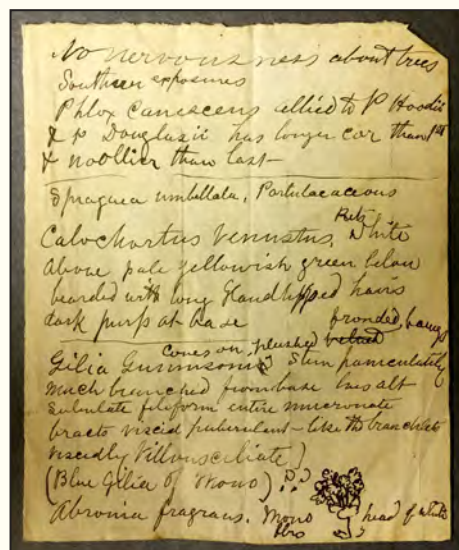 No nervousness about trees
Southern exposures
Phlox Canescens allied to P Hoodii
& P Douglasii has longer cor than 1st
& woollier than last—
Spraguea umbellata, Portulacaceous
Calochortus Venustus, Pets White
above pale yellowish green below
bearded with long hairs
dark purp at base
fronded,
Cones on, plushed
Gilia Stem paniculately
much branched from base lvs alt
subulate filoform entire mucronate
bracts viscid puberulent — like the branchlets
viscidly Villous ciliate)
(Blue Gilia of Mono)
Abronia fragrans. Mono
head of white